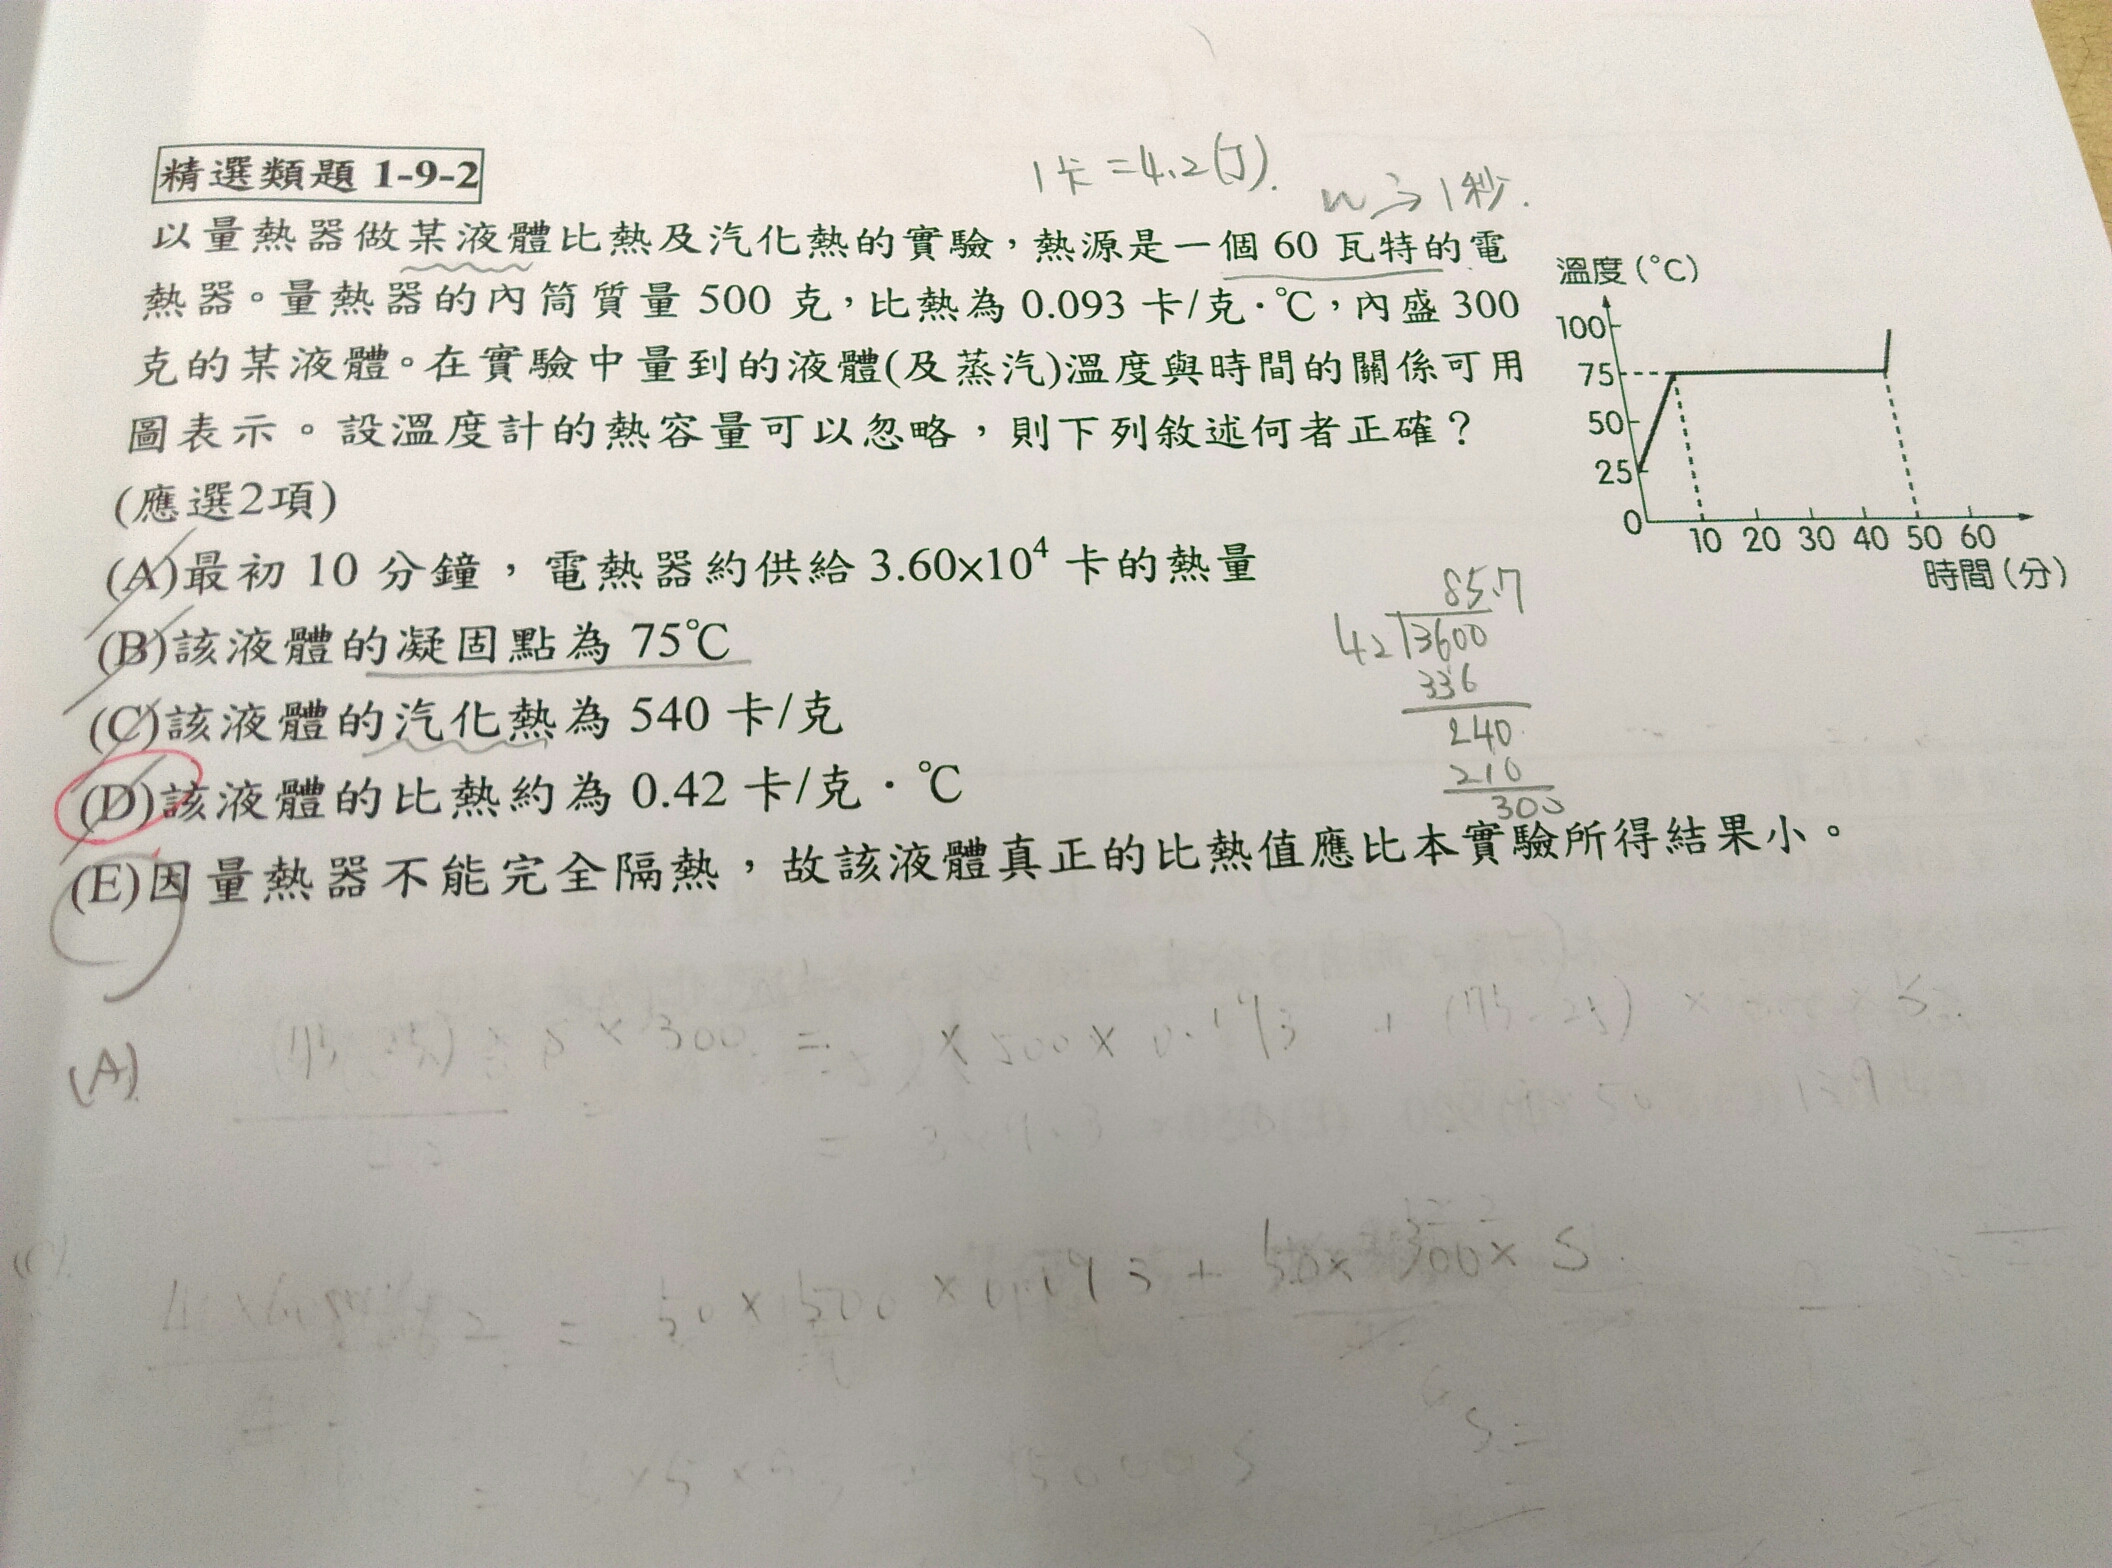 精選類題 1-9-2
1卡=4.2(J).
w⇒1秒.
以量熱器做某液體比熱及汽化熱的實驗，熱源是一個 60 瓦特的電
熱器。量熱器的內筒質量 500 克，比熱為 0.093 卡/克·℃，內盛 300
克的某液體。在實驗中量到的液體(及蒸汽)溫度與時間的關係可用
圖表示。設溫度計的熱容量可以忽略，則下列敘述何者正確？
(應選2項)
(A)最初 10 分鐘，電熱器約供給 3.60×10⁴ 卡的熱量
(B)該液體的凝固點為 75℃
(C)該液體的汽化熱為 540 卡/克
(D)該液體的比熱約為 0.42 卡/克·℃
(E)因量熱器不能完全隔熱，故該液體真正的比熱值應比本實驗所得結果小。
溫度(℃)
100
75
50
25
0
10 20 30 40 50 60
時間(分)
85.7
42 3600
336
240
210
300
(A)
300 =
× 500 × 0.193
50 × 500 × 0.193 + 50 × 300 × S
S =